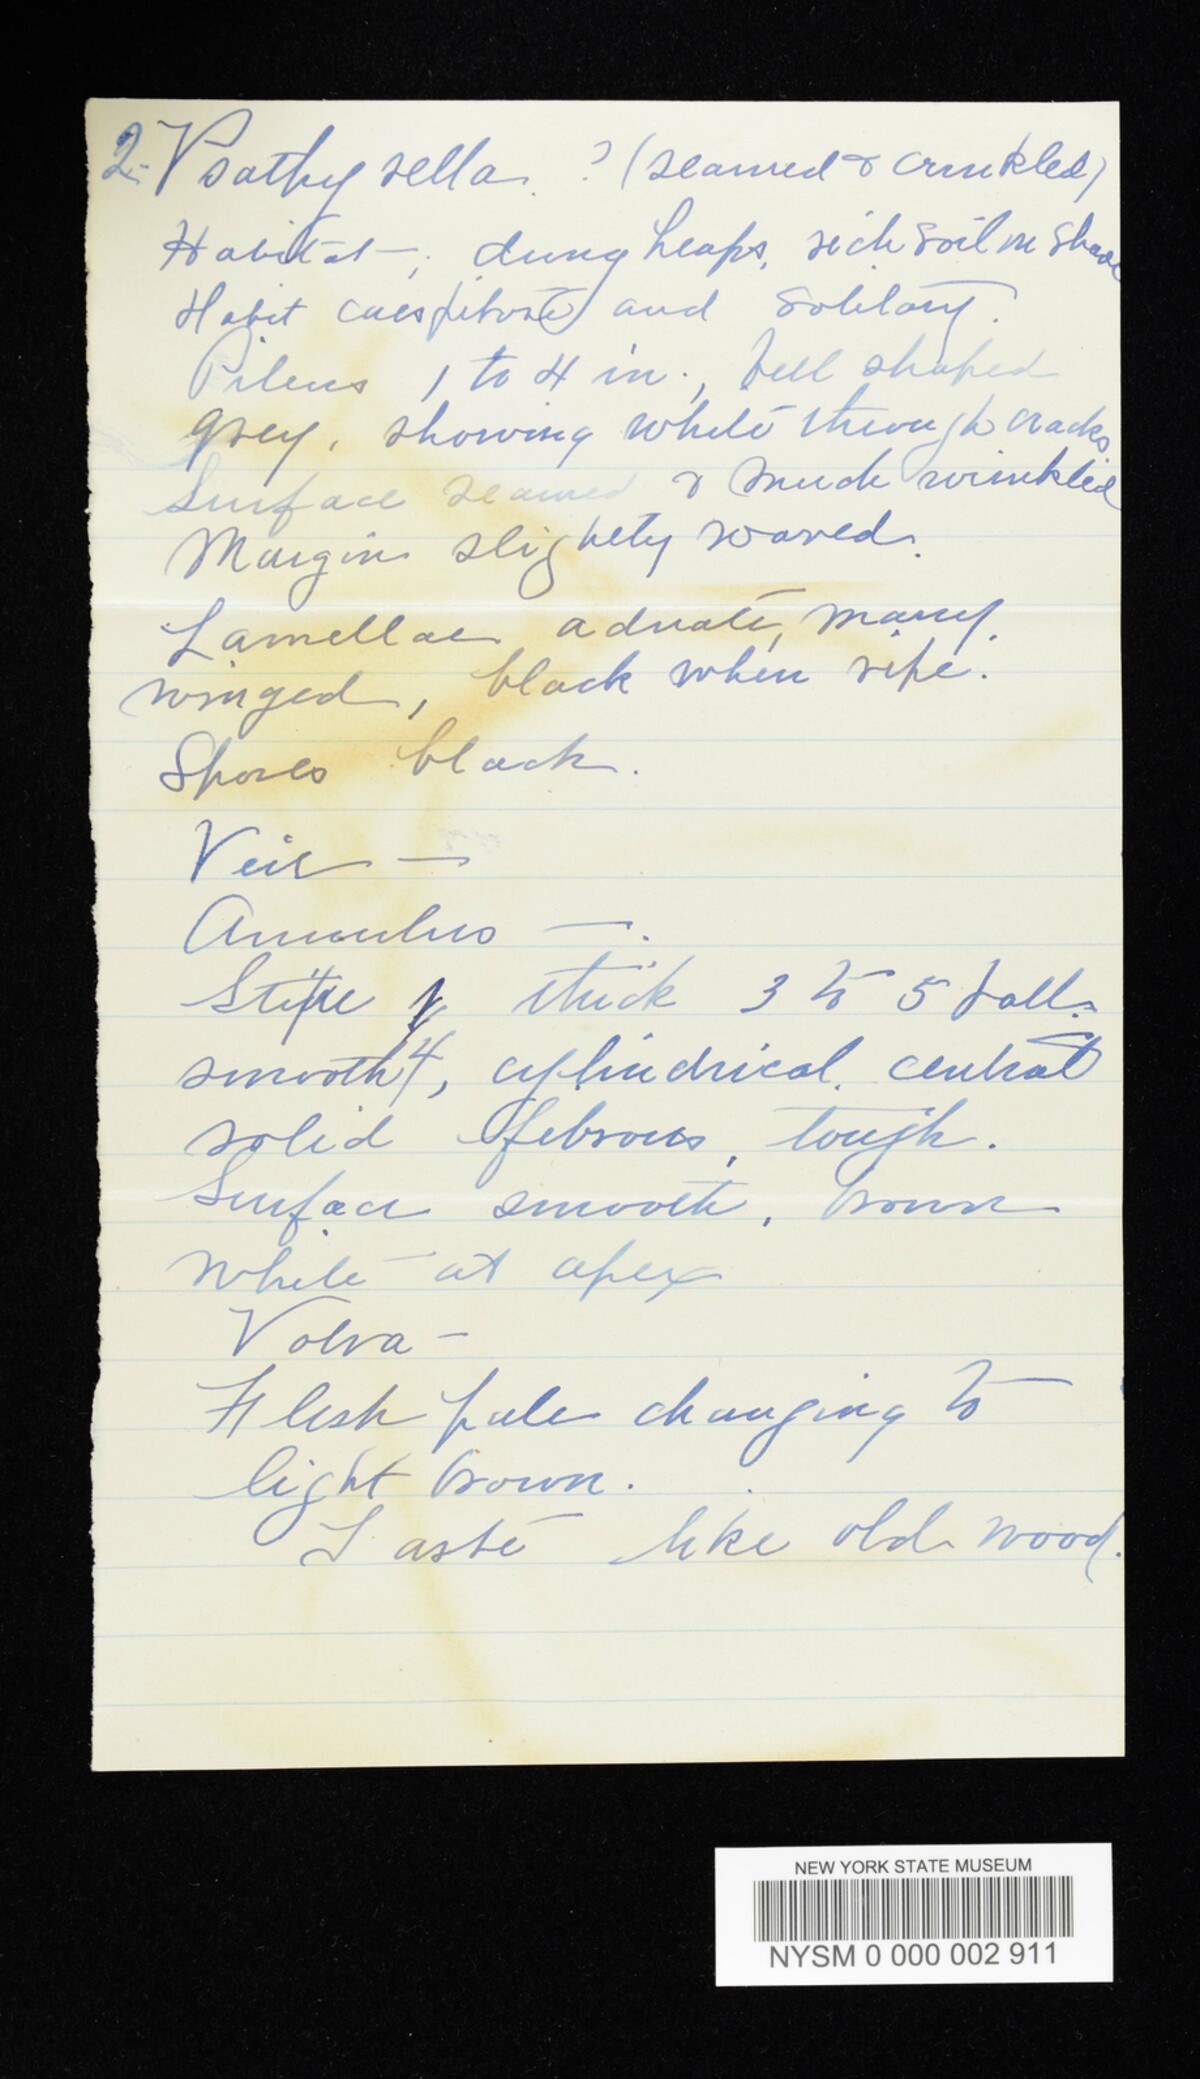 2- Psathyrella. ? (seamed & crinkled)
Habitat, dung heaps, rich soil in shade
Habit caespitose and solitary.
Pileus 1 to 4 in., bell shaped
grey, showing white through cracks,
Surface seamed & much wrinkled
Margin slightly waved.
Lamellae adnate, many,
winged, black when ripe.
Spores black.
Veil —
Annulus —.
Stipe thick 3 to 5 tall.
smooth, cylindrical, central
solid fibrous, tough.
Surface smooth, brown
white at apex
Volva -
Flesh pale changing to
light brown.
Taste like old wood.
NEW YORK STATE MUSEUM
NYSM 0 000 002 911